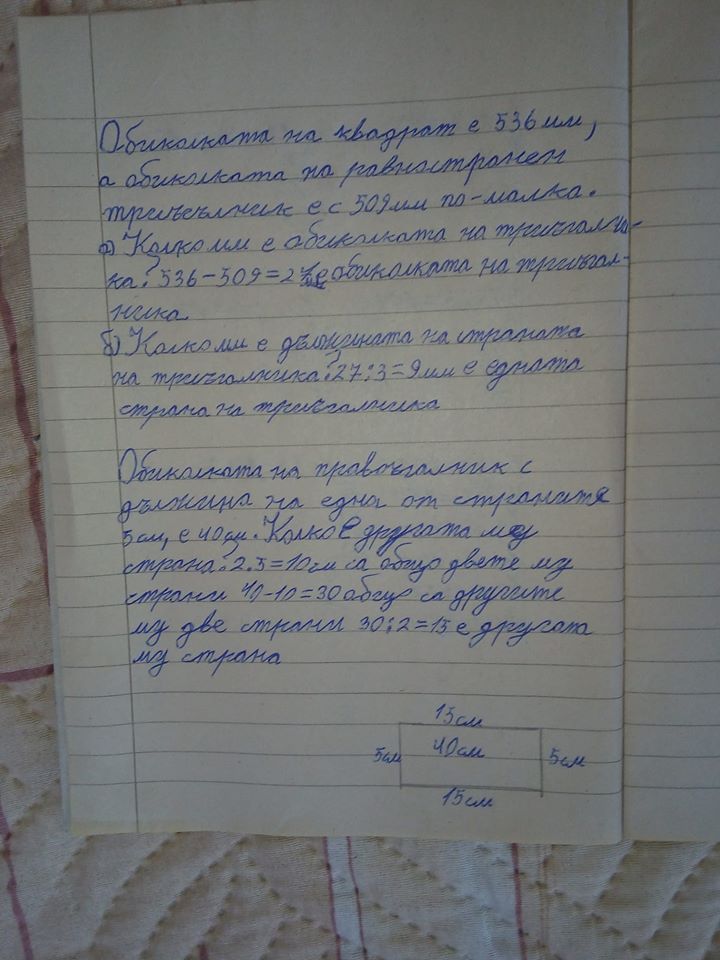 Обиколката на квадрат е 536 мм,
а обиколката на равностранен
триъгълник е с 509 мм по-малка.
а) Колко мм е обиколката на триъгълни-
ка? 536-509=27 е обиколката на триъгъл-
ника
б) Колко мм е дължината на страната
на триъгълника? 27:3=9 мм е едната
страна на триъгълника
Обиколката на правоъгалник с
дължина на една от страните
5 см, е 40 см. Колко е другата му
страна? 2.5=10 см са общо двете му
страни 40-10=30 общо са другите
му две страни 30:2=15 е другата
му страна
15 см
5 см 40 см 5 см
15 см